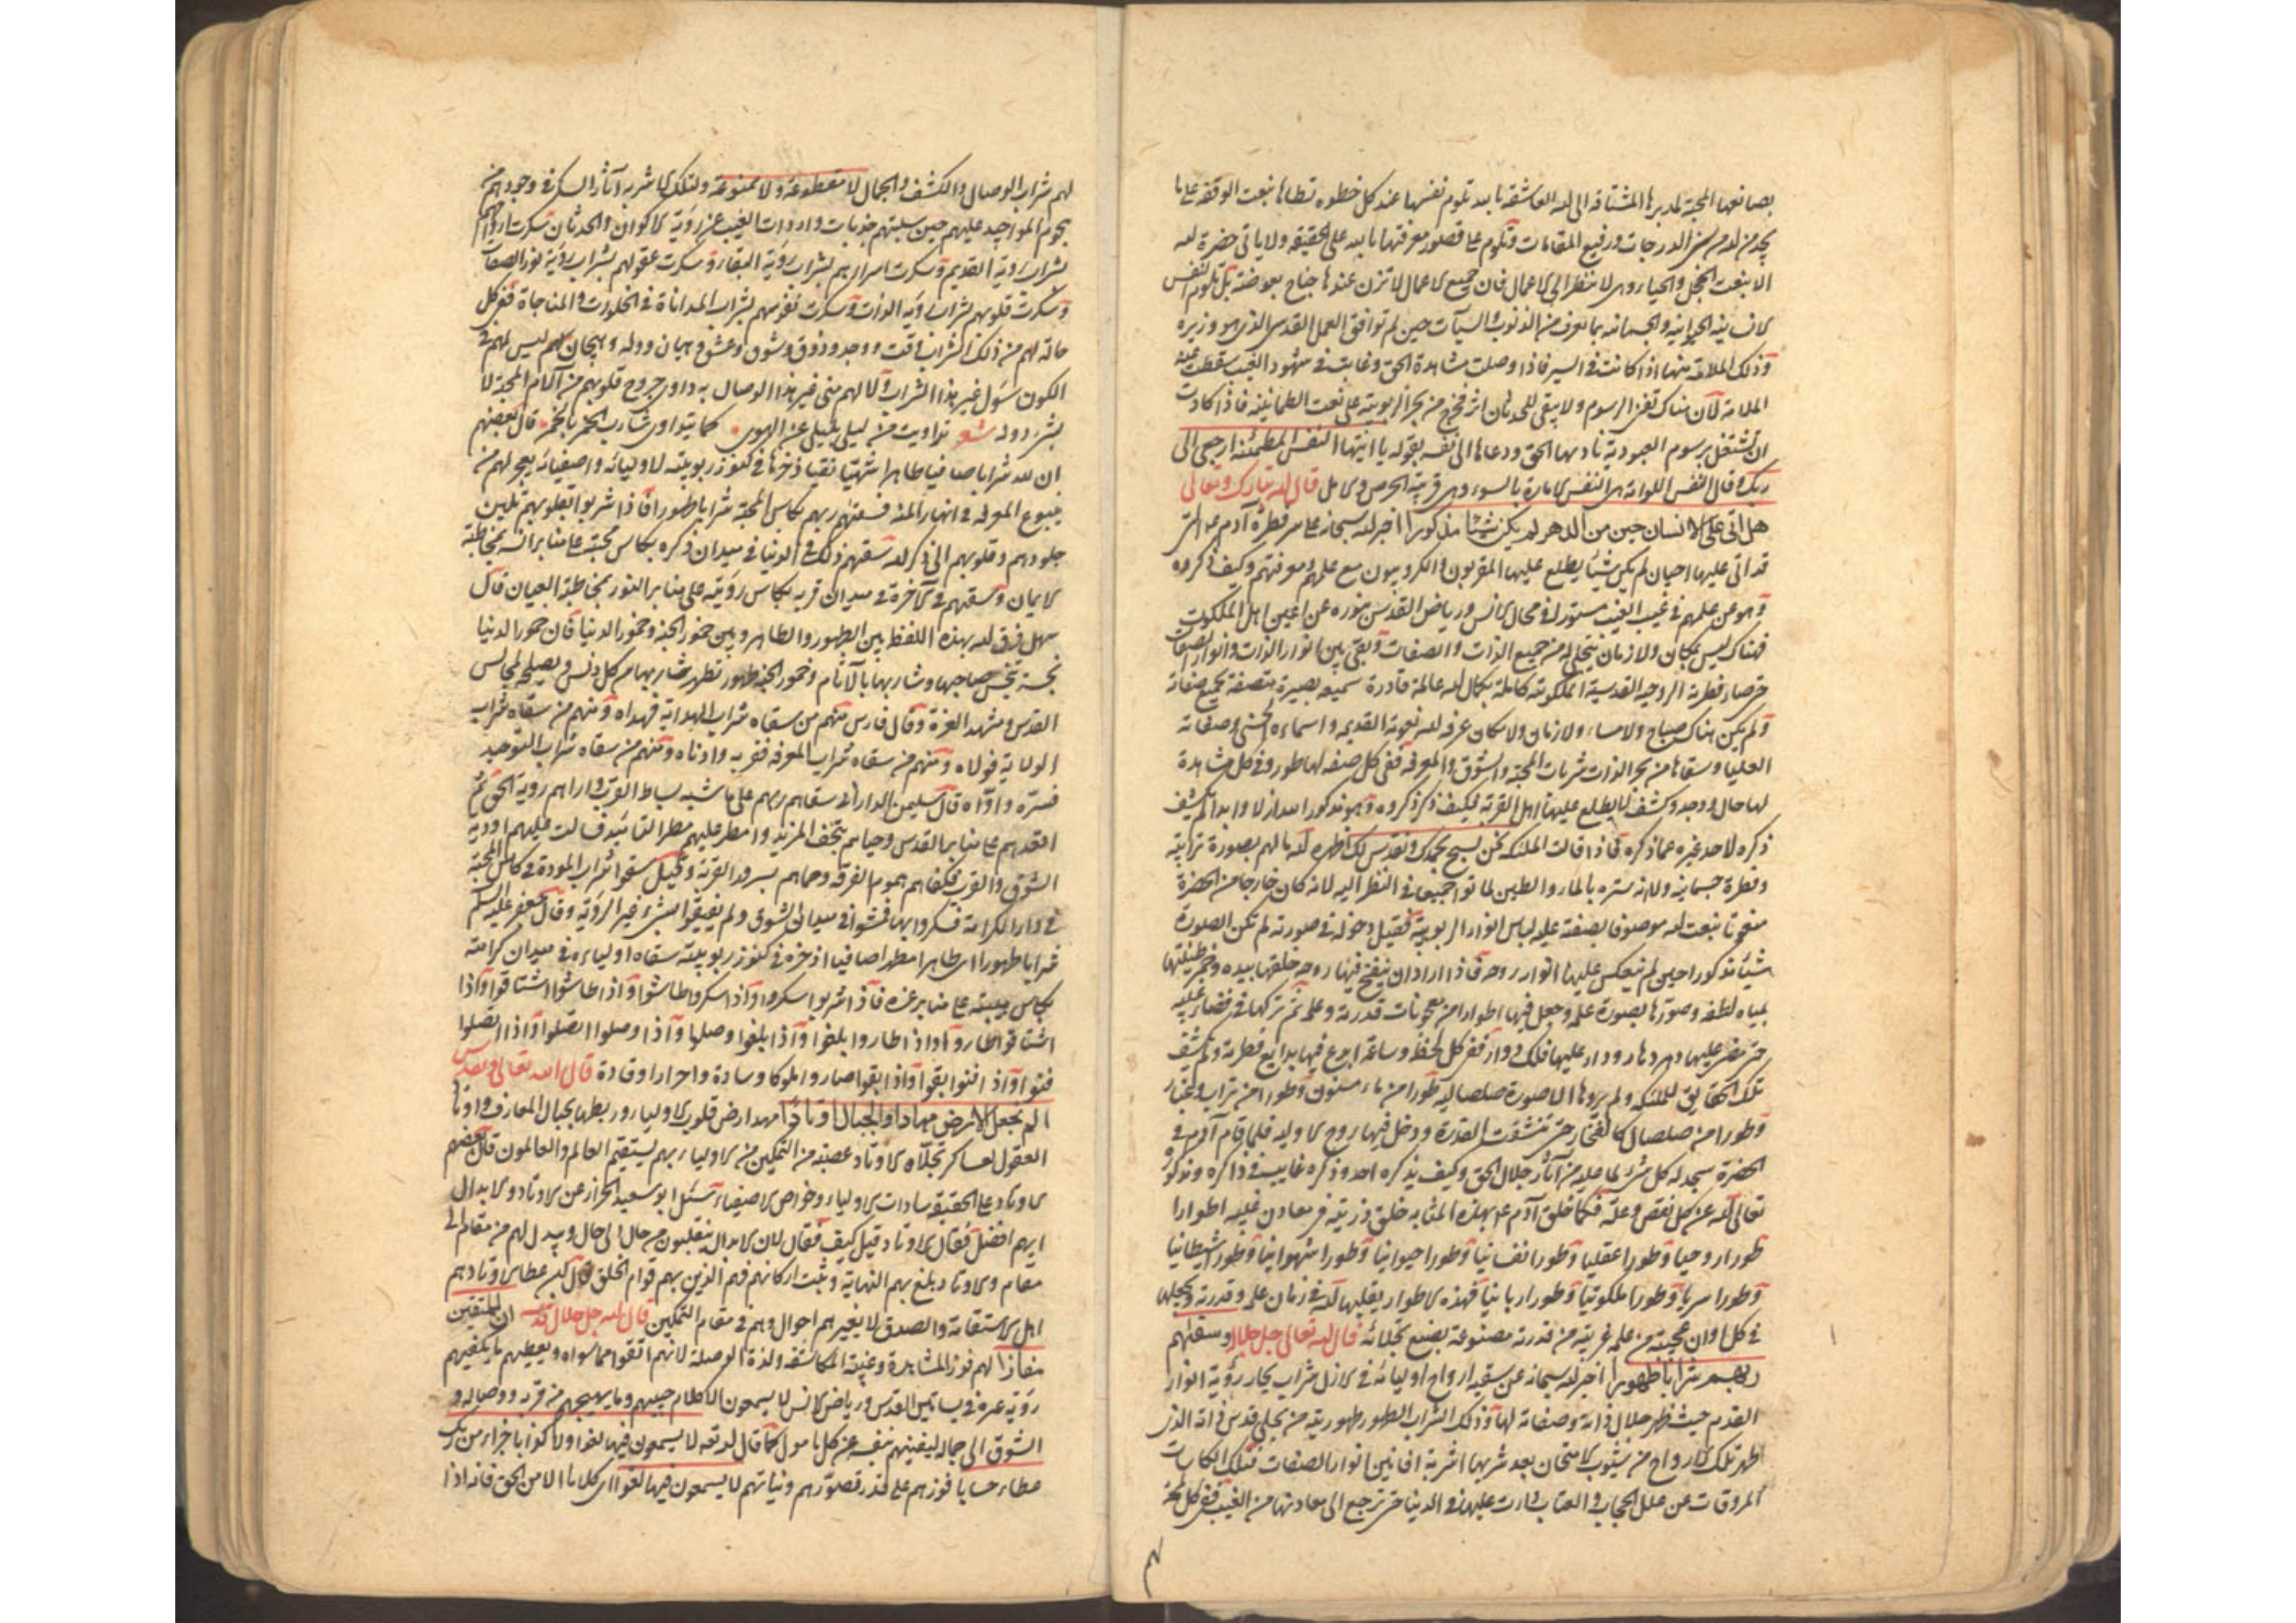 بصانعها المحبة لمدبرها المشتاقة الى الله العاشقة بالله تلوم نفسها عند كل خطوة بنعت الوقفة على ما
يجد من لدمن الدرجات ورفيع المقامات وتلوم على قصور معرفتها بالله على الحقيقة ولا ياتى حضرة الله
الا بنعت الخجل والحياء وهى لا تنظر الى الاعمال فان جميع الاعمال لا تزن عندها جناح بعوضة بل تلوم النفس
الانسانية الحيوانية والجسمانية بما تعرف من الذنوب والسيآت حين لم توافق العمل القدسى الذى هو وزيره
وذلك الملامة منها اذا كانت فى السير فاذا وصلت مشاهدة الحق وغابت فى شهود الغيب سقطت عنه
الملامة لان هناك تفنى الرسوم ولا يبقى للحدثان اثر فخرج من بحر الربوبية على نعت الطمانينة فاذا كادت
ان تشتغل برسوم العبودية ناداها الحق ودعاها الى نفسه بقوله يا ايتها النفس المطمئنة ارجعى الى
ربك وقال النفس اللوامة هى النفس الامارة بالسوء وهى قرينة الحرص والامل قال الله تبارك وتعالى
هل اتى على الانسان حين من الدهر لم يكن شيئا مذكورا اخبر الله سبحانه على سر فطرة آدم التى
قد اتى عليها احيان لم يكن شيئا يطلع عليها المقربون والكروبيون مع علمهم ومعرفتهم وكيف ذكروه
وهو عن علمهم فى غيب الغيب مستور فى مجال الانس ورياض القدس بنوره عن اعين اهل الملكوت
فهناك ليس بمكان ولا زمان تتجلى له من جميع الذات والصفات وبقى بين انوار الذات وانوار الصفات
حتى صار فطرته الروحية القدسية الملكوتية كاملة بكمال الله عالمة قادرة سميعة بصيرة متصفة بجميع صفاته
ولم يكن هناك صباح ولا مساء ولا زمان ولا مكان عرفه الله نعوته القديمة واسماءه الحسنى وصفاته
العليا وسقاها من بحر الذات شربات المحبة والشوق والمعرفة ففى كل صفة لها طور وفى كل مشاهدة
لها حال ووجد وكشف لا يطلع عليها اهل القربة فكيف ذكر ذكروه وهو مذكور الله ازلا وابدا لم يكشف
ذكره لاحد غيره عما ذكره فاذا قالت الملئكة نحن نسبح بحمدك ونقدس لك اظهره الله لهم بصورة ترابية
وفطرة جسمانية ولانه ستره بالماء والطين لما توا جميعا فى النظر اليه لانه كان خارجا من الحضرة
منعوتا بنعت الله موصوفا بصفته عليه لباس انوار الربوبية فقيل دخوله فى صورته لم تكن الصورة
شيئا مذكورا حين لم ينعكس عليها انوار روحه فاذا اراد ان ينفخ فيها روحه خلقها بيده وخمر طينتها
بمياه لطفه وصورها بصورة علمه وجعل فيها اطوارا من معجونات قدرته وعلمه ثم تركها فى فضاء غيبه
حتى مضى عليها دهر دهار ودار عليها فلك دوار ففى كل لحظة وساعة ابدع فيها بدايع فطرته ولم تكشف
تلك الحقايق للملئكة ولم يروها الا صورة صلصالية طورا من ماء مسنون وطورا من تراب وغبار
وطورا من صلصال كالفخار حتى تنشقت القدرة ودخل فيها روح الاولية فلما قام آدم فى
الحضرة سجد له كل شئ لما عليه من آثار جلال الحق وكيف يذكره احد وذكره غايب فى ذاكره ومذكوره
تعالى الله عن كل نقص وعلة فكما خلق آدم بهذه المثابة خلق ذريته فى معادن غيبه اطوارا
طورا روحيا وطورا عقليا وطورا نفسانيا وطورا حيوانيا وطورا شهوانيا وطورا شيطانيا
وطورا سريا وطورا ملكوتيا وطورا ربانيا فهذه الاطوار يقلبها الله فى زمان علمه وقدرته ويجعلها
فى كل اوان عجيبة من علمه غريبة من قدرته مصنوعة بصنع تجلائه قال الله تعالى جل جلاله وسقيهم
ربهم شرابا طهورا اخبر الله سبحانه عن سقيه ارواح اوليائه فى الازل شراب بحار رؤية انوار
القدم حيث ظهر جلال ذاته وصفاته لها وذلك الشراب الطهور طهوريته من تجلى قدس ذاته الذى
اطهر تلك الارواح من شوب الامتحان بعد شربها اشربة افانين انوار الصفات فتلك الكاسات
المروقات عن علل الحجاب والعتاب دارت عليهم فى الدنيا حتى ترجع الى معادنها من الغيب ففى كل لمحة
لهم شراب الوصال والكشف والجمال لا مقطوعة ولا ممنوعة ولتلك الاشربة آثار السكر فى وجودهم من
هجوم المواجيد عليهم حين سلبتهم جذبات واردات الغيب عن رؤية الاكوان والحدثان سكرت ارواحهم
بشراب رؤية القديم وسكرت اسرارهم بشراب رؤية البقاء وسكرت عقولهم بشراب رؤية نور الصفات
وسكرت قلوبهم بشراب رؤية الذات وسكرت نفوسهم بشراب المداناة فى الخلوات والمناجاة ففى كل
حالة لهم من ذلك الشراب وقت ووجد وذوق وشوق وعشق وهيمان ووله وهيجان كلهم ليس لهم فى
الكون سؤل غير هذا الشراب ولا لهم منى غير هذا الوصال به داوى جروح قلوبهم من آلام المحبة لا
بشئ دونه شعر تداويت من ليلى بليلى عن الهوى كما يتداوى شارب الخمر بالخمر قال بعضهم
ان لله شرابا صافيا طاهرا شهيا نقيا ذخرها فى كنوز ربوبيته لاوليائه واصفيائه يفجر لهم من
ينبوع المعرفة فى انهار المنة فسقيهم ربهم بكاس المحبة شرابا طهورا فاذا شربوا بقلوبهم تلين
جلودهم وقلوبهم الى ذكر الله سقيهم ذلك فى الدنيا فى ميدان ذكره بكاس محبته على منابر انسه بمخاطبة
الايمان وسقيهم فى الآخرة فى ميدان قربه بكاس رؤيته على منابر النور بمخاطبة العيان قال
سهل فرق الله بهذه اللفظ بين الطهور والطاهر وبين خمور الجنة وخمور الدنيا فان خمور الدنيا
نجسة تنجس صاحبها وشاربها بالآثام وخمور الجنة طهور تطهر شاربها من كل دنس ويصلحه لمجالس
القدس ومشهد العزة وقال فارس منهم من سقاه شراب الهداية فهداه ومنهم من سقاه شراب
الولاية فولاه ومنهم من سقاه شراب المعرفة فقربه وادناه ومنهم من سقاه شراب التوحيد
فسره وآواه قال سليمن الدارانى سقاهم ربهم على حاشية بساط القرب واراهم رؤية الحق ثم
اقعدهم على منابر القدس وحياهم بتحف المزيد وامطر عليهم مطر التائيد فسالت عليهم اودية
الشوق والقرب فكفاهم هموم الفرقة وحماهم بسرور القربة وقيل سقوا شراب المودة فى كاس المحبة
فى دار الكرامة فسكروا بها فمشوا فى ميدان الشوق ولم يفيقوا بشئ غير الرؤية وقال جعفر عليه السلم
شرابا طهورا اى طاهرا مطهرا صافيا اذخره فى كنوز ربوبيته سقاه اولياءه فى ميدان كرامته
بكاس هيبته على منابر عزه فاذا شربوا سكروا واذا سكروا طاشوا واذا طاشوا اشتاقوا واذا
اشتاقوا طاروا واذا طاروا بلغوا واذا بلغوا وصلوا واذا وصلوا اتصلوا واذا اتصلوا
فنوا واذا فنوا بقوا واذا بقوا صاروا ملوكا وسادة واحرارا وقادة قال الله تعالى وتقدس
الم نجعل الارض مهادا والجبال اوتادا مهد ارض قلوب الاولياء وربطها بجبال المعارف واوتاد
العقول لعساكر تجلاه الاوتاد عصبة من التمكين من الاولياء بهم يستقيم العالم والعالمون قال بعضهم
الاوتاد على الحقيقة سادات الاولياء وخواص الاصفياء سئل ابو سعيد الخراز عن الاوتاد والابدال
ايهم افضل فقال الاوتاد قيل كيف فقال لان الابدال ينقلبون من حال الى حال ويبدل لهم من مقام الى
مقام والاوتاد بلغ بهم النهاية وثبت اركانهم فهم الذين بهم قوام الخلق قال ابن عطا الاوتاد هم
اهل الاستقامة والصدق لا يغيرهم احوال وهم فى مقام التمكين قال الله جل جلاله ان للمتقين
مفازا لهم فوز المشاهدة وغنية المكاشفة ولذة الوصلة لانهم اتقوا مما سواه ويعطيهم ما يكفيهم
رؤية عمره فى بساتين القدس ورياض الانس لا يسمعون الا كلام حبيبهم وما يهيجهم من قربه ووصاله و
الشوق الى جماله ليغنيهم بنفسه عن كل مامول كما قال الله تعه لا يسمعون فيها لغوا ولا كذابا جزاء من ربك
عطاء حسابا فوزهم على قدر قصورهم ونياتهم لا يسمعون فيها لغوا اى كلاما الا من الحق فانه اذا